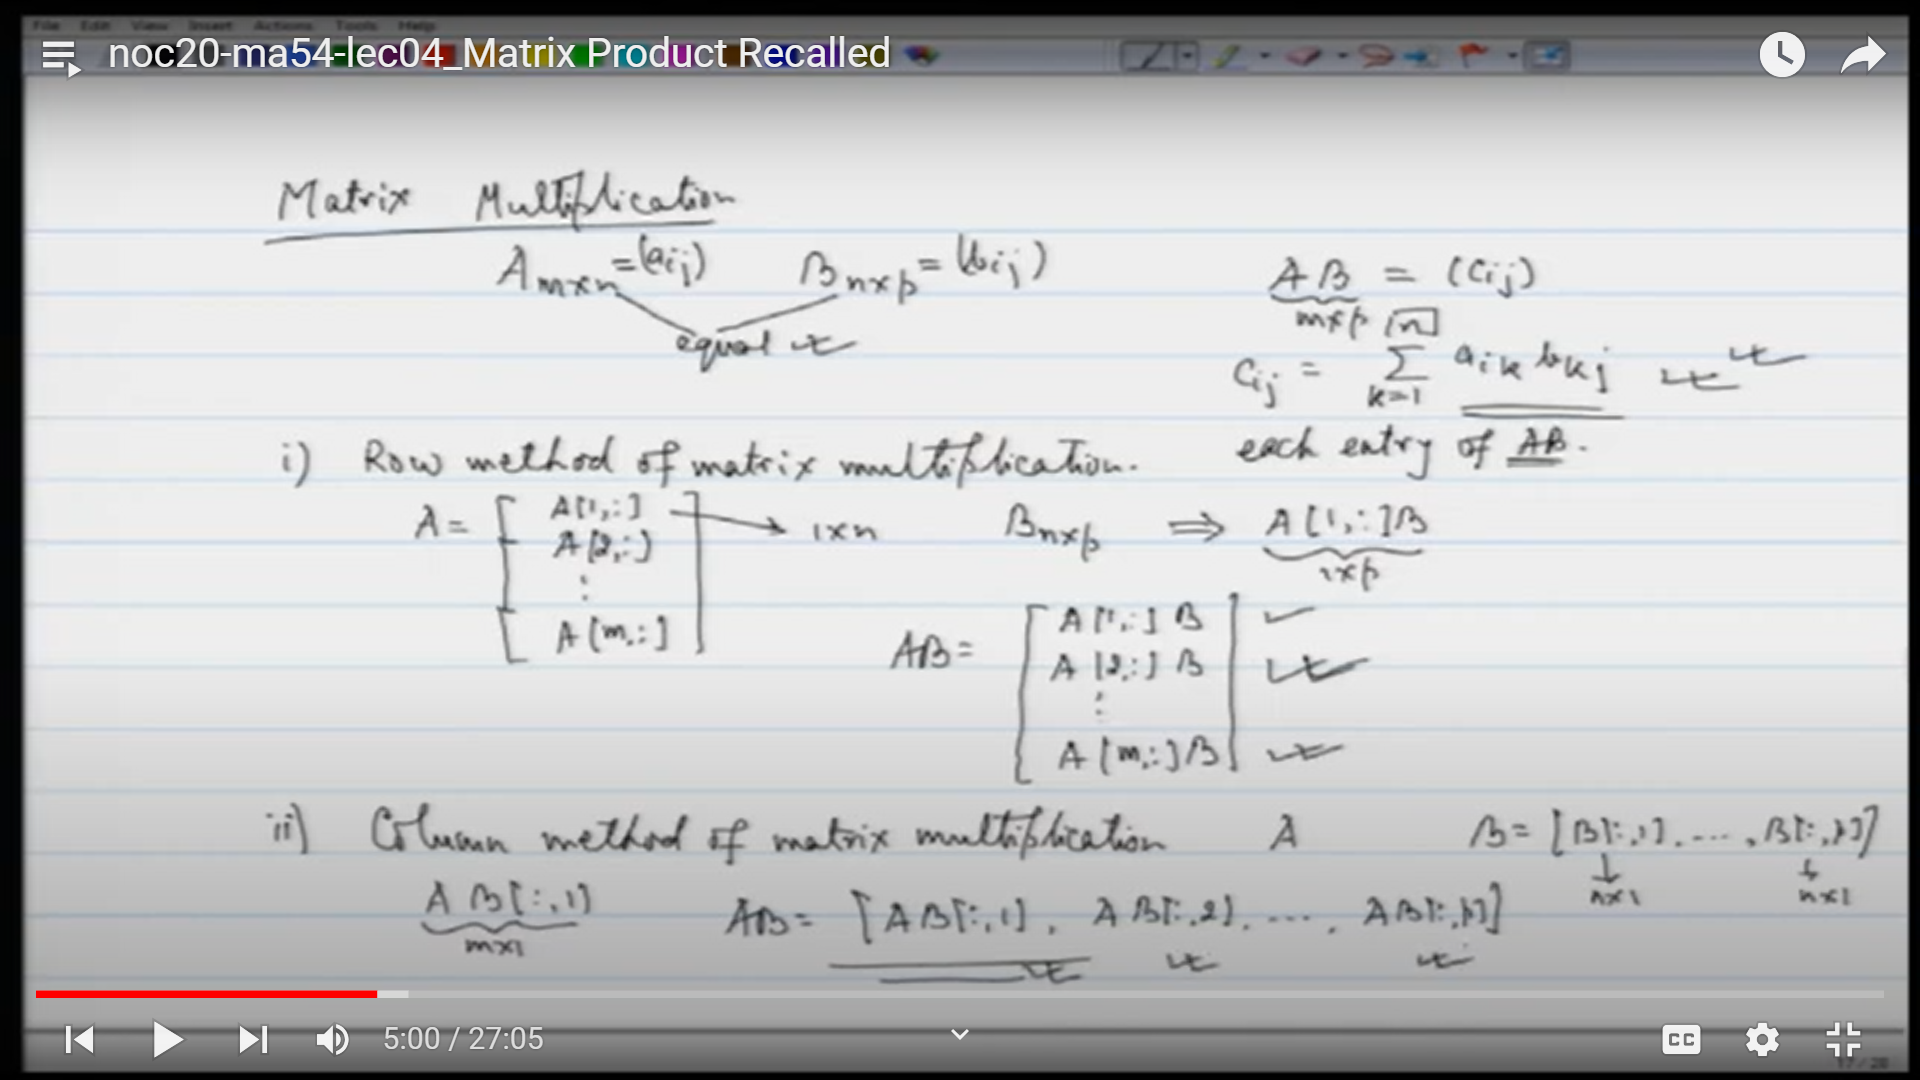 File Edit View Insert Actions Tools Help
noc20-ma54-lec04_Matrix Product Recalled
Matrix Multiplication
A m×n = (aij) B n×p = (bij)
equal
AB = (cij)
m×p
n
cij = Σ aik bkj
k=1
each entry of AB.
i) Row method of matrix multiplication.
A = [ A[1,:] → 1×n B n×p ⇒ A[1,:]B
A[2,:]
1×p
⋮
A[m,:] ]
AB = [ A[1,:] B
A[2,:] B
⋮
A[m,:] B ]
ii) Column method of matrix multiplication A B = [B[:,1], ...., B[:,p]]
n×1 n×1
A B[:,1] AB = [AB[:,1], AB[:,2], ..., AB[:,p]]
m×1
5:00 / 27:05
CC
17 / 28